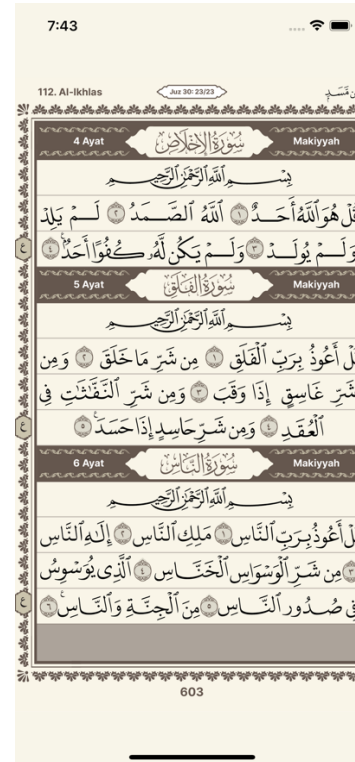 7:43
112. Al-Ikhlas
Juz 30: 23/23
4 Ayat سُورَةُ الْإِخْلَاصِ Makiyyah
بِسْمِ ٱللَّهِ ٱلرَّحْمَٰنِ ٱلرَّحِيمِ
هُوَ ٱللَّهُ أَحَدٌ ١ ٱللَّهُ ٱلصَّمَدُ ٢ لَمْ يَلِدْ
وَلَمْ يُولَدْ ٣ وَلَمْ يَكُن لَّهُۥ كُفُوًا أَحَدٌۢ ٤
ع
5 Ayat سُورَةُ الْفَلَقِ Makiyyah
بِسْمِ ٱللَّهِ ٱلرَّحْمَٰنِ ٱلرَّحِيمِ
أَعُوذُ بِرَبِّ ٱلْفَلَقِ ١ مِن شَرِّ مَا خَلَقَ ٢ وَمِن
شَرِّ غَاسِقٍ إِذَا وَقَبَ ٣ وَمِن شَرِّ ٱلنَّفَّٰثَٰتِ فِى
ٱلْعُقَدِ ٤ وَمِن شَرِّ حَاسِدٍ إِذَا حَسَدَ ٥
ع
6 Ayat سُورَةُ النَّاسِ Makiyyah
بِسْمِ ٱللَّهِ ٱلرَّحْمَٰنِ ٱلرَّحِيمِ
أَعُوذُ بِرَبِّ ٱلنَّاسِ ١ مَلِكِ ٱلنَّاسِ ٢ إِلَٰهِ ٱلنَّاسِ
٣ مِن شَرِّ ٱلْوَسْوَاسِ ٱلْخَنَّاسِ ٤ ٱلَّذِى يُوَسْوِسُ
فِى صُدُورِ ٱلنَّاسِ ٥ مِنَ ٱلْجِنَّةِ وَٱلنَّاسِ ٦
ع
603